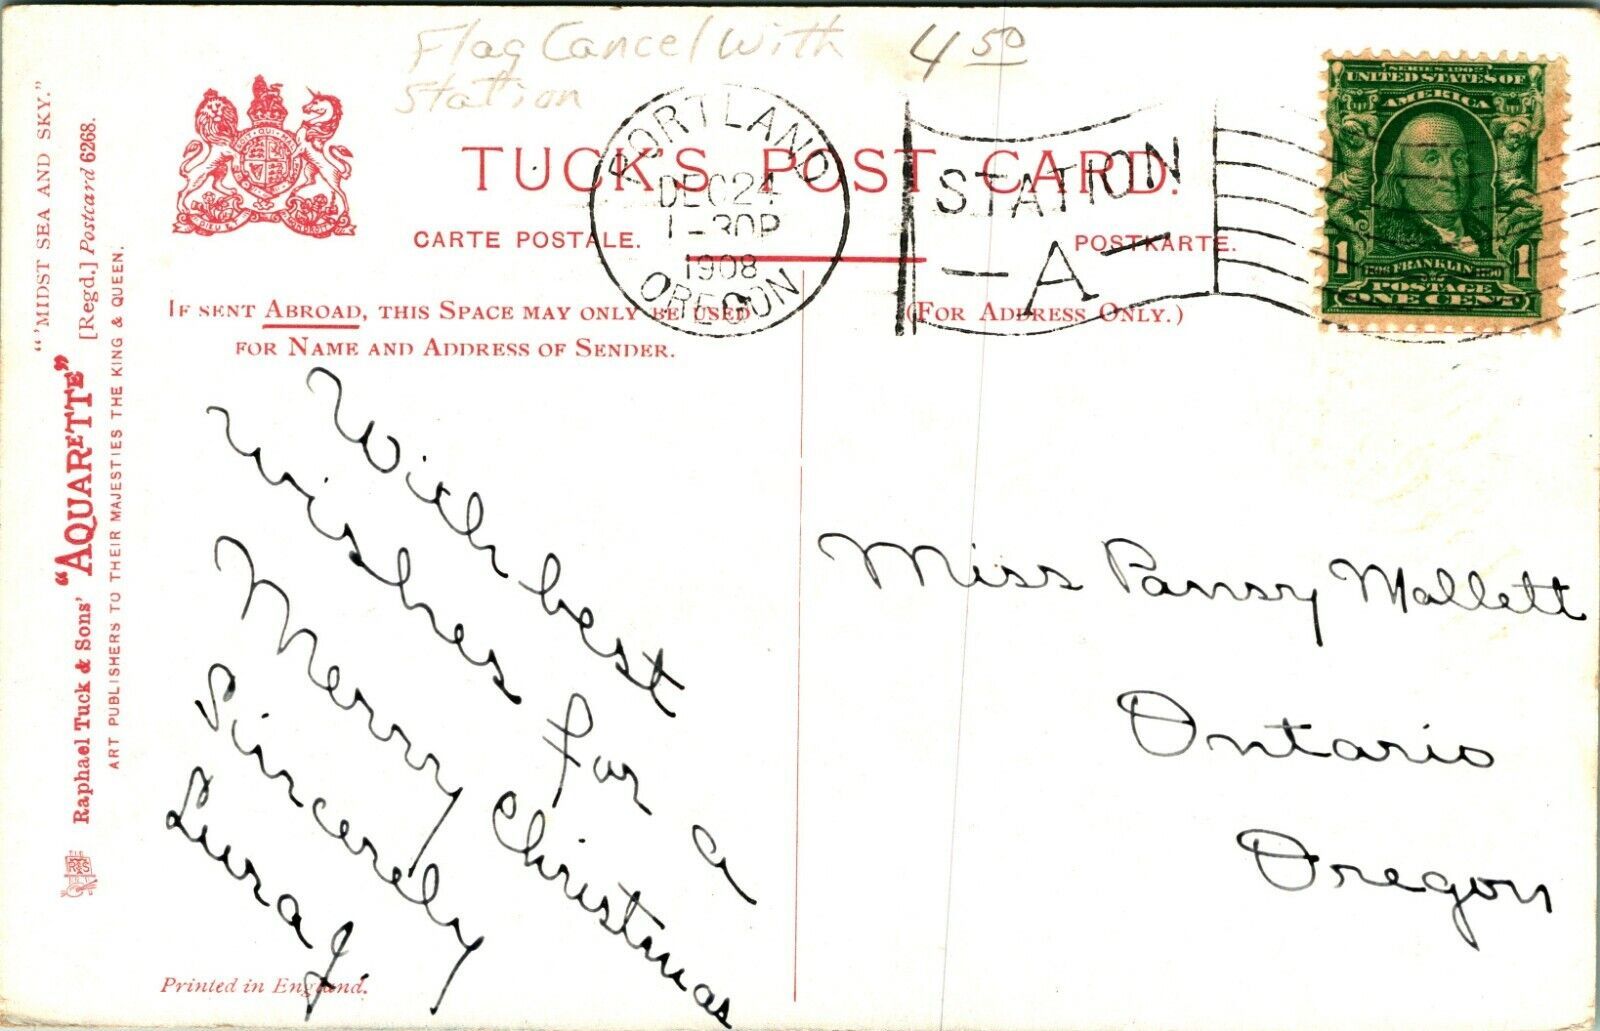 Flag Cancel With 4 50
Station
"'MIDST SEA AND SKY."
Raphael Tuck & Sons' "AQUARETTE" [Regd.] Postcard 6268.
ART PUBLISHERS TO THEIR MAJESTIES THE KING & QUEEN.
TUCK'S POST CARD.
CARTE POSTALE. POSTKARTE.
PORTLAND
DEC 24
1-30P
1908
OREGON
STATION
-A-
SERIES 1902
UNITED STATES OF
AMERICA
1 FRANKLIN 1
POSTAGE
ONE CENT
IF SENT ABROAD, THIS SPACE MAY ONLY BE USED
FOR NAME AND ADDRESS OF SENDER.
(FOR ADDRESS ONLY.)
With best
wishes for a
Merry Christmas
Sincerely
Lura J
Miss Pansy Mallett
Ontario
Oregon
Printed in England.